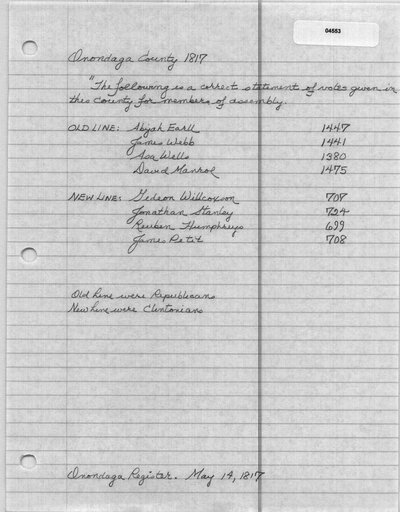 04553
Onondaga County 1817
"The following is a correct statement of votes given in
this County for members of assembly.
OLD LINE: Abijah Earll 1447
James Webb 1441
Asa Wells 1380
David Munroe 1475
NEW LINE: Gideon Willcoxson 707
Jonathan Stanley 724
Reuben Humphreys 699
James Petit 708
Old Line were Republicans
New Line were Clintonians
Onondaga Register. May 14, 1817